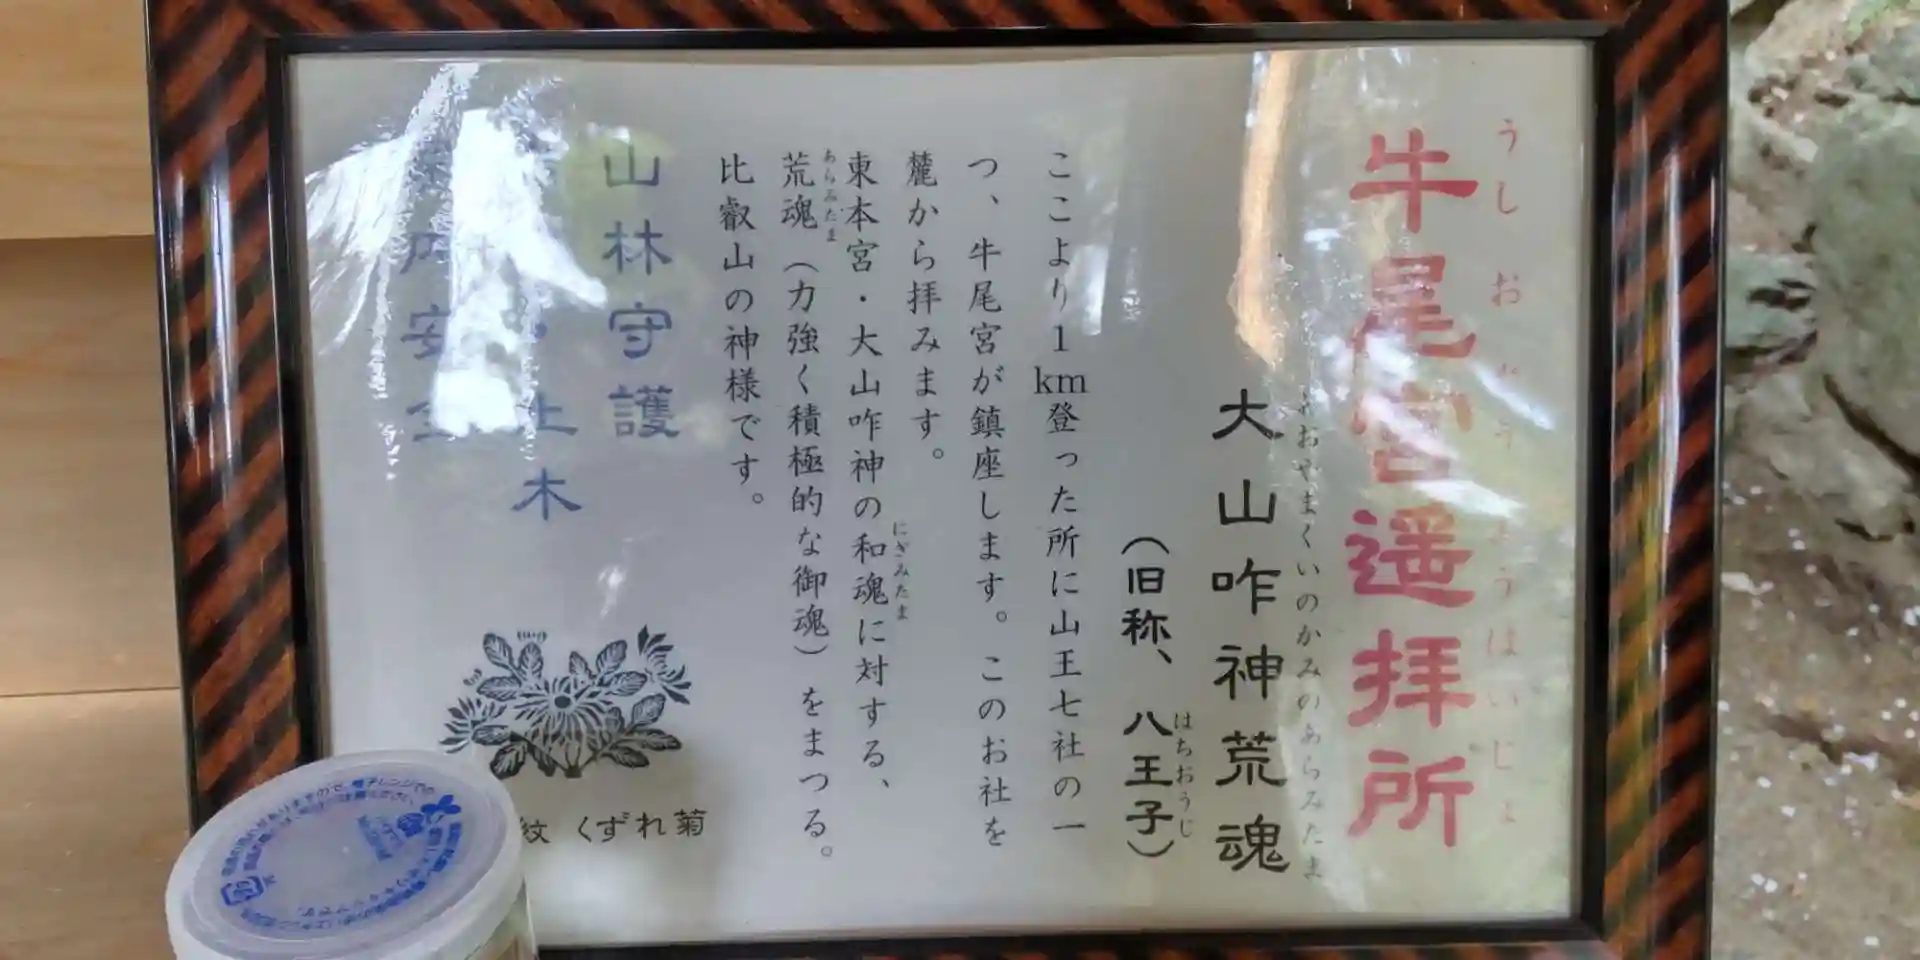 牛尾宮遥拝所
大山咋神荒魂
おおやまくいのかみのあらみたま
(旧称、八王子)
はちおうじ
ここより1km登った所に山王七社の一
つ、牛尾宮が鎮座します。このお社を
麓から拝みます。
東本宮・大山咋神の和魂に対する、
にぎみたま
荒魂(力強く積極的な御魂)をまつる。
あらみたま
比叡山の神様です。
山林守護
土木
内安全
紋 くずれ菊